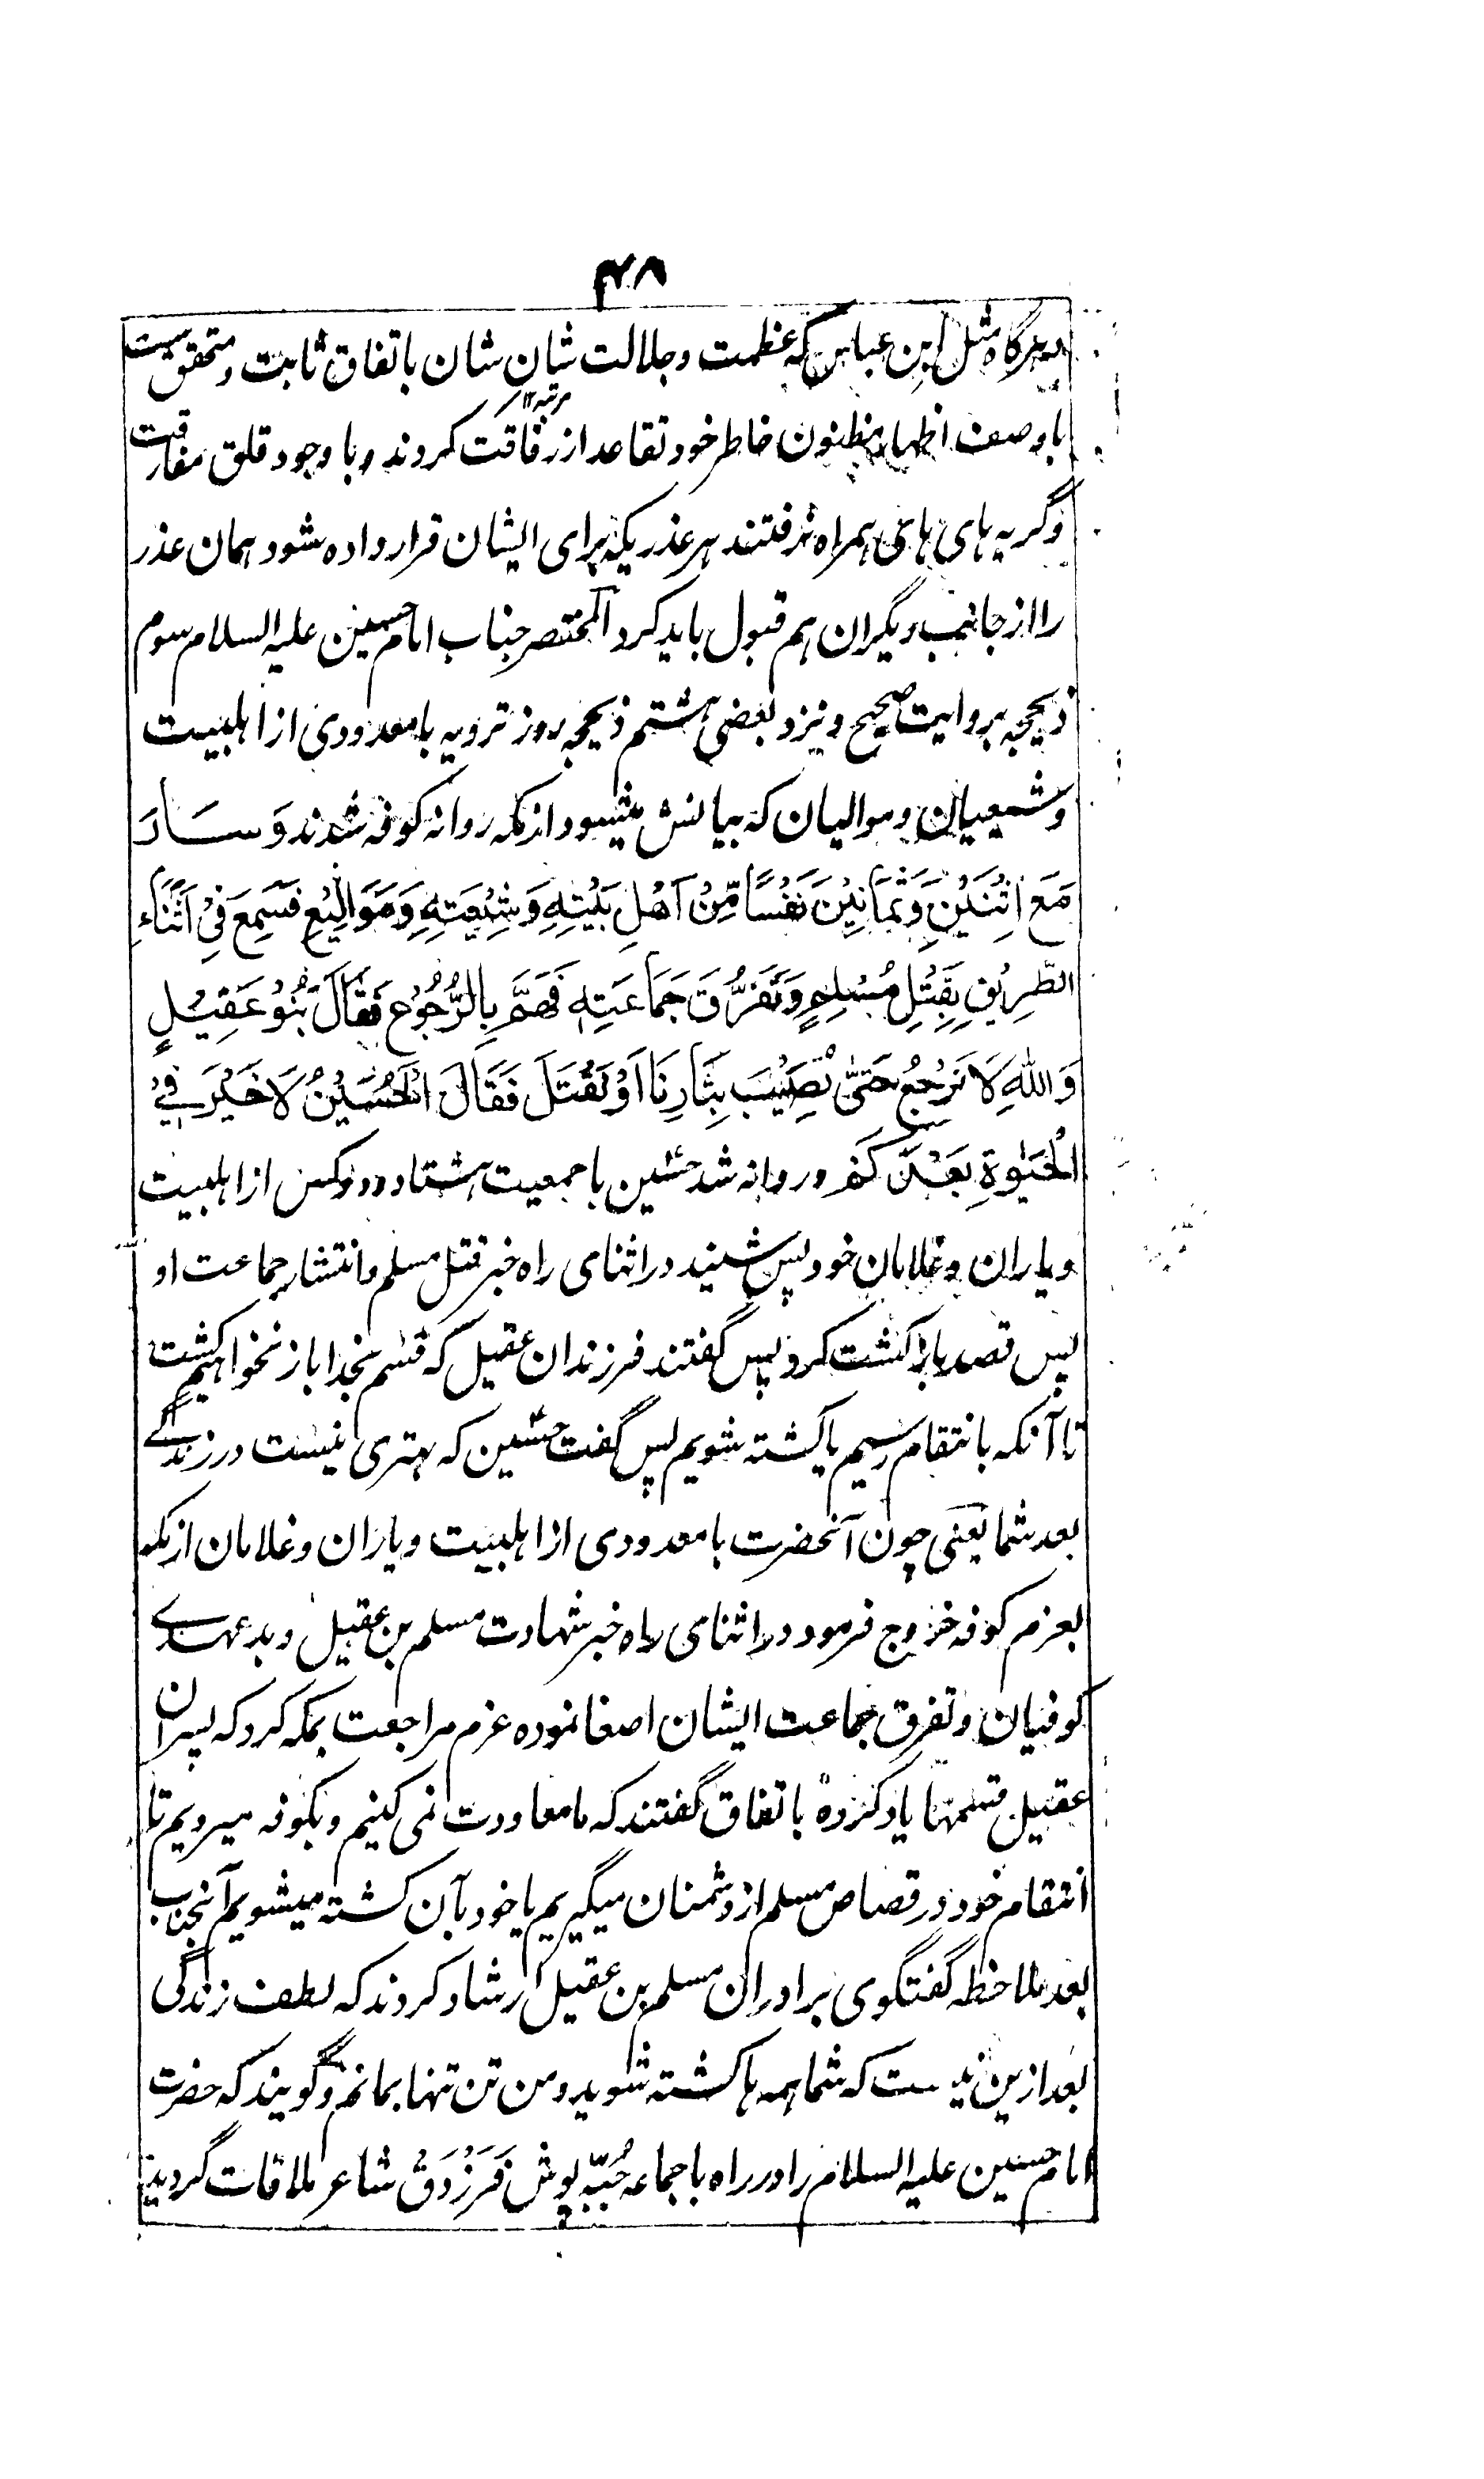 ۴۸
و هرگاه مثل ابن عباس که عظمت و جلالت شان شان باتفاق ثابت و متحقق ست
باوصف اظهار مظنون خاطر خود تقاعد از رفاقت کردند و با وجود قلق مفارقت
و گریه های های همراه نرفتند هر عذریکه برای ایشان قرار داده شود همان عذر
را از جانب دیگران هم قبول باید کرد المختصر جناب امام حسین علیه السلام سوم
ذیحجه بروایت صحیح و نزد بعضی هشتم ذیحجه بروز ترویه با معدودی از اهلبیت
و شیعیان و موالیان که بیانش میشود از مکه روانه کوفه شدند وَسَارَ
مَعَ اثْنَيْنِ وَثَمَانِيْنَ نَفْسًا مِّنْ اَهْلِ بَيْتِهٖ وَشِيْعَتِهٖ وَمَوَالِيْهِ فَسَمِعَ فِيْ اَثْنَاءِ
الطَّرِيْقِ بِقَتْلِ مُسْلِمٍ وَتَفَرُّقَ جَمَاعَتِهٖ فَهَمَّ بِالرُّجُوْعِ فَقَالَ بَنُوْ عَقِيْلٍ
وَاللهِ لَا نَرْجِعُ حَتّٰى نُصِيْبَ بِثَارِنَا اَوْ نُقْتَلَ فَقَالَ الْحُسَيْنُ لَا خَيْرَ فِيْ
الْحَيٰوةِ بَعْدَكُمْ و روانه شد حسین با جمعیت هشتاد و دو کس از اهلبیت
و یاران و غلامان خود پس شنید در اثنای راه خبر قتل مسلم و انتشار جماعت او
پس قصد بازگشت کرد پس گفتند فرزندان عقیل که قسم بخدا باز نخواهیم گشت
تا آنکه بانتقام رسیم یا کشته شویم پس گفت حسین که بهتری نیست در زندگے
بعد شما یعنی چون آنحضرت با معدودی از اهلبیت و یاران و غلامان از مکه
بعزم کوفه خروج فرمود در اثنای راه خبر شهادت مسلم بن عقیل و بدعهدے
کوفیان و تفرق جماعت ایشان اصغا نموده عزم مراجعت بمکه کرد که پسران
عقیل قسمها یاد کرده باتفاق گفتند که ما معاودت نمی کنیم و بکوفه میرویم تا
انتقام خود در قصاص مسلم از دشمنان میگیریم یا خود بآن کشته میشویم آنجناب
بعد ملاحظه گفتگوی برادران مسلم بن عقیل ارشاد کردند که لطف زندگی
بعد ازین نیست که شما همه ها کشته شوید و من تن تنها بمانم و گویند که حضرت
امام حسین علیه السلام را در راه با جماعه جُبّه پوش فَرَزْدَقْ شاعر ملاقات گردید